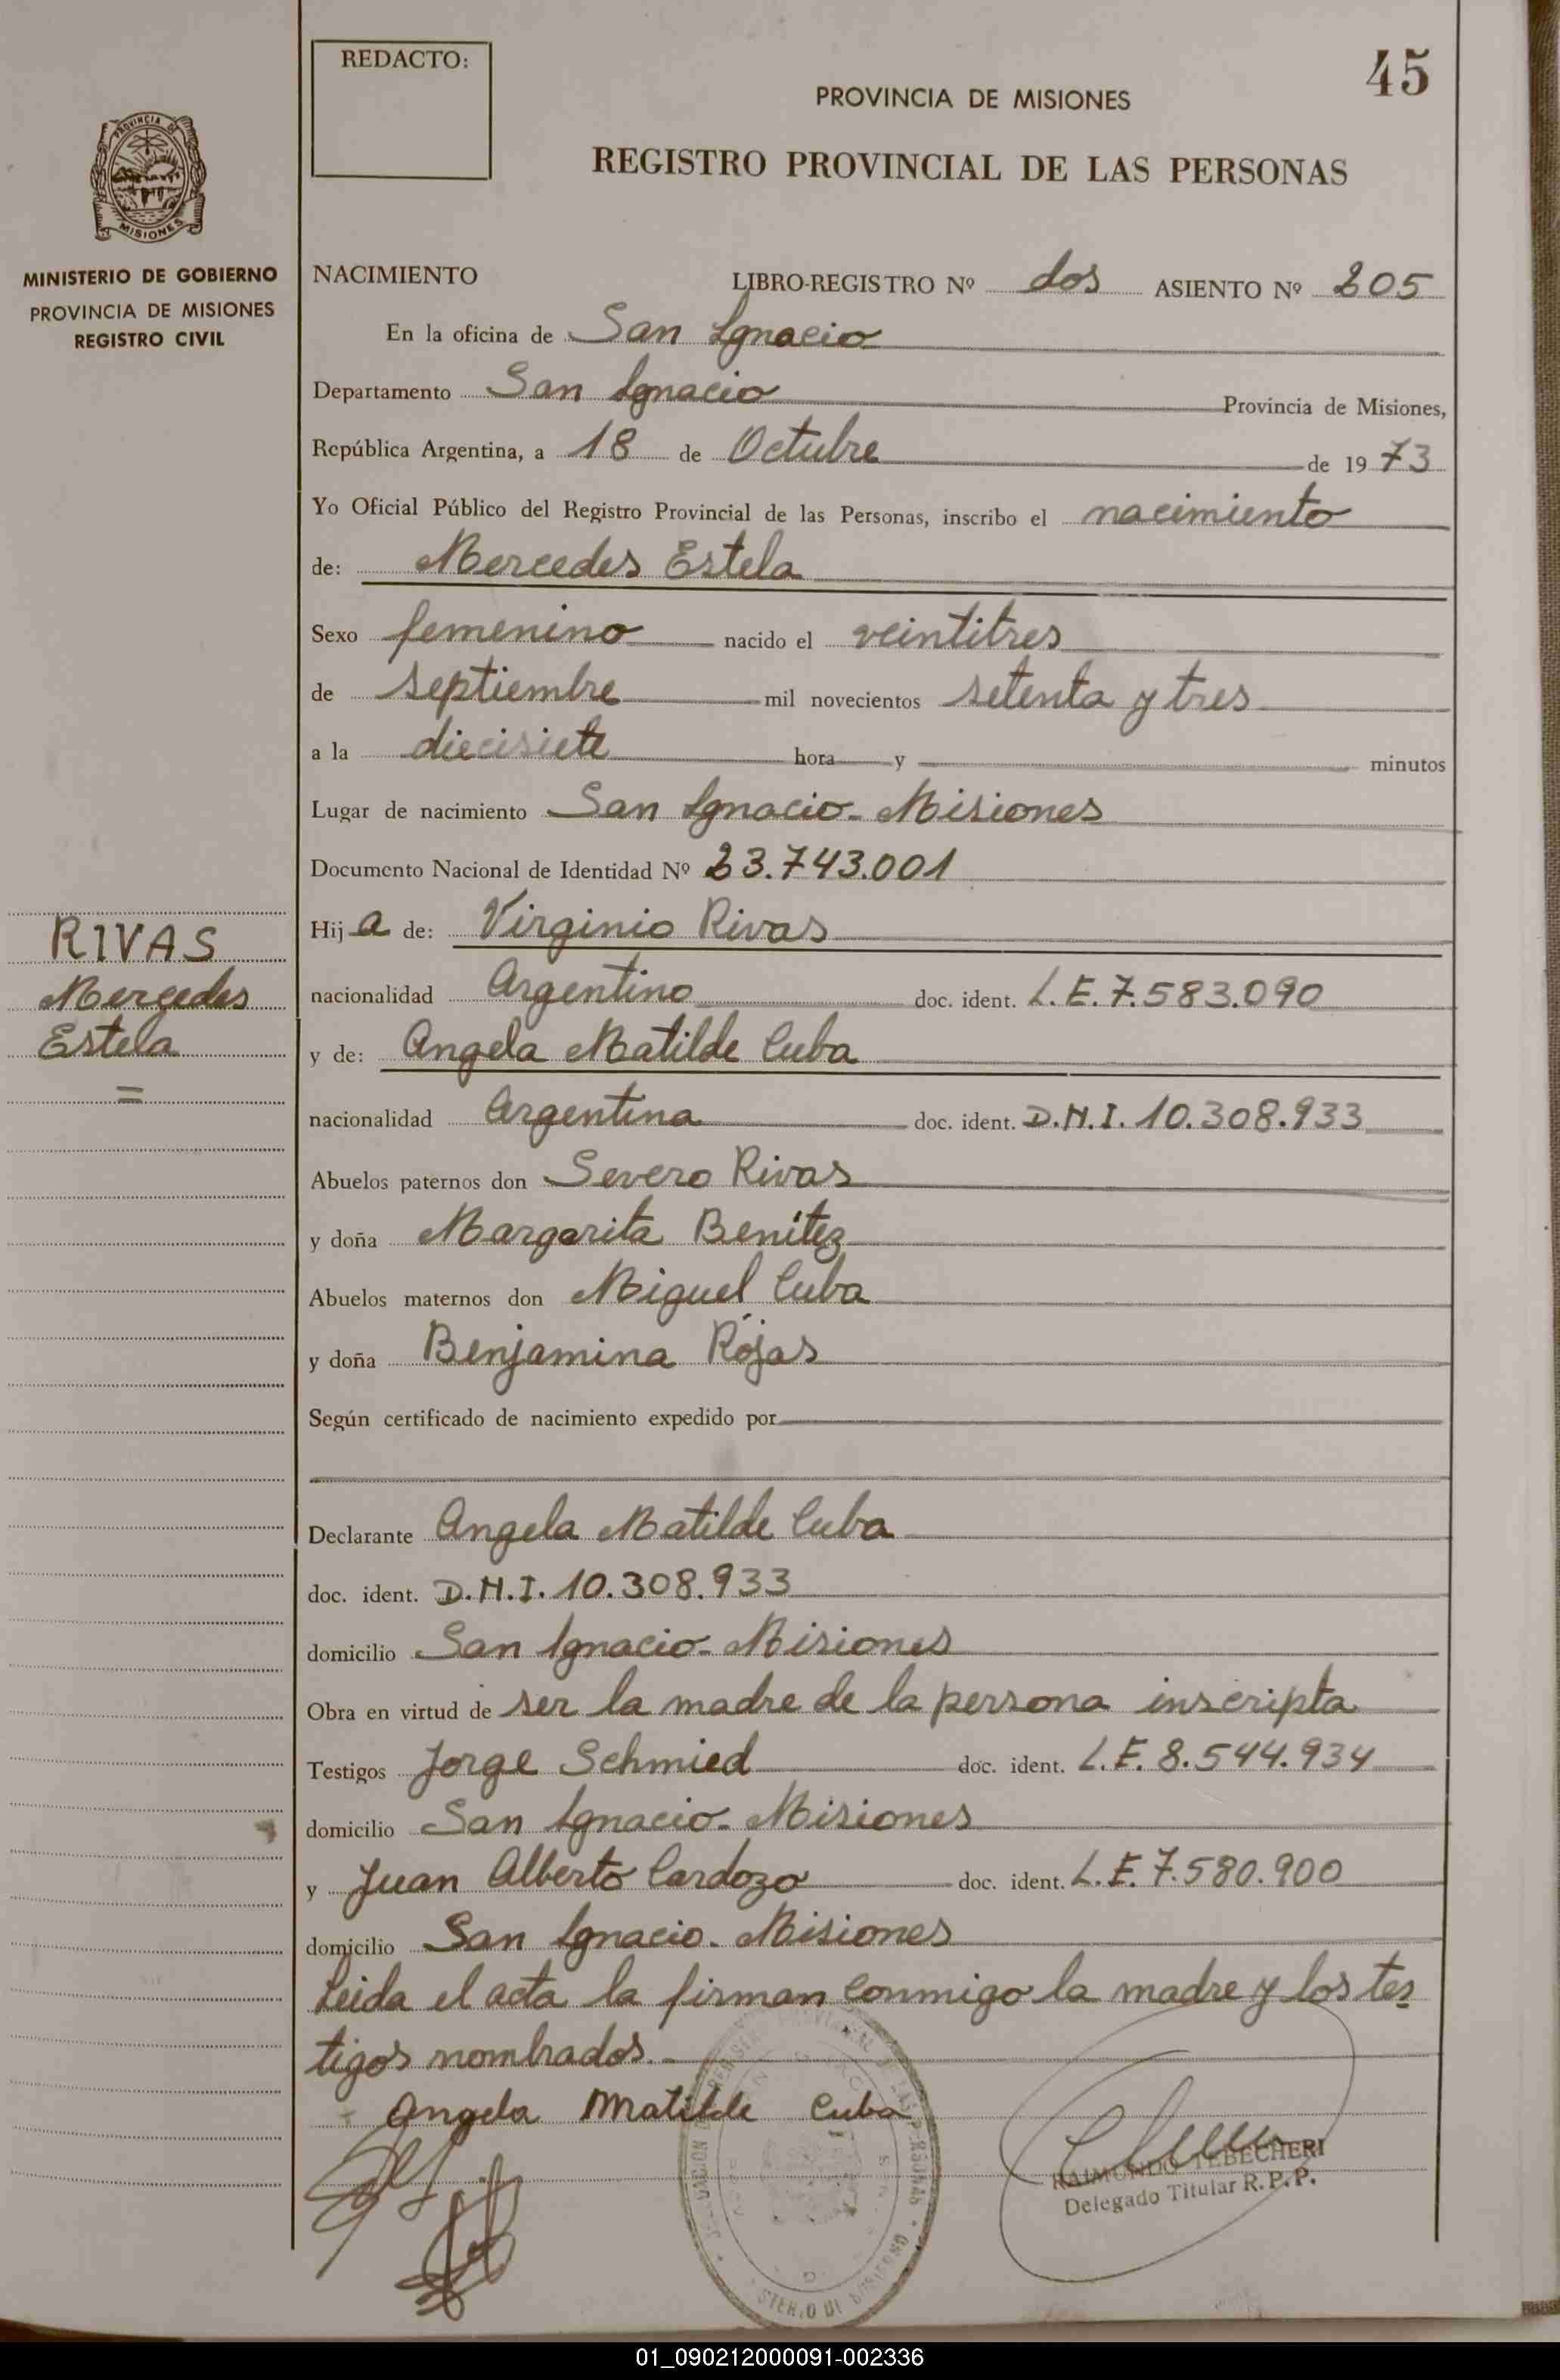 REDACTO:
45
PROVINCIA DE MISIONES
REGISTRO PROVINCIAL DE LAS PERSONAS
PROVINCIA DE
MISIONES
MINISTERIO DE GOBIERNO
PROVINCIA DE MISIONES
REGISTRO CIVIL
NACIMIENTO LIBRO-REGISTRO Nº dos ASIENTO Nº 205
En la oficina de San Ignacio
Departamento San Ignacio Provincia de Misiones,
República Argentina, a 18 de Octubre de 1973
Yo Oficial Público del Registro Provincial de las Personas, inscribo el nacimiento
de: Mercedes Estela
Sexo femenino nacido el veintitres
de septiembre mil novecientos setenta y tres
a la diecisiete hora y minutos
Lugar de nacimiento San Ignacio - Misiones
Documento Nacional de Identidad Nº 23.743.001
RIVAS
Mercedes
Estela
=
Hija de: Virginio Rivas
nacionalidad Argentino doc. ident. L.E. 7.583.090
y de: Angela Matilde Cuba
nacionalidad Argentina doc. ident. D.N.I. 10.308.933
Abuelos paternos don Severo Rivas
y doña Margarita Benítez
Abuelos maternos don Miguel Cuba
y doña Benjamina Rojas
Según certificado de nacimiento expedido por
Declarante Angela Matilde Cuba
doc. ident. D.N.I. 10.308.933
domicilio San Ignacio - Misiones
Obra en virtud de ser la madre de la persona inscripta
Testigos Jorge Schmied doc. ident. L.E. 8.544.934
domicilio San Ignacio - Misiones
y Juan Alberto Cardozo doc. ident. L.E. 7.580.900
domicilio San Ignacio - Misiones
Leida el acta la firman conmigo la madre y los tes
tigos nombrados.-
Angela Matilde Cuba
RAIMUNDO TEBECHERI
Delegado Titular R.P.P.
01_090212000091-002336